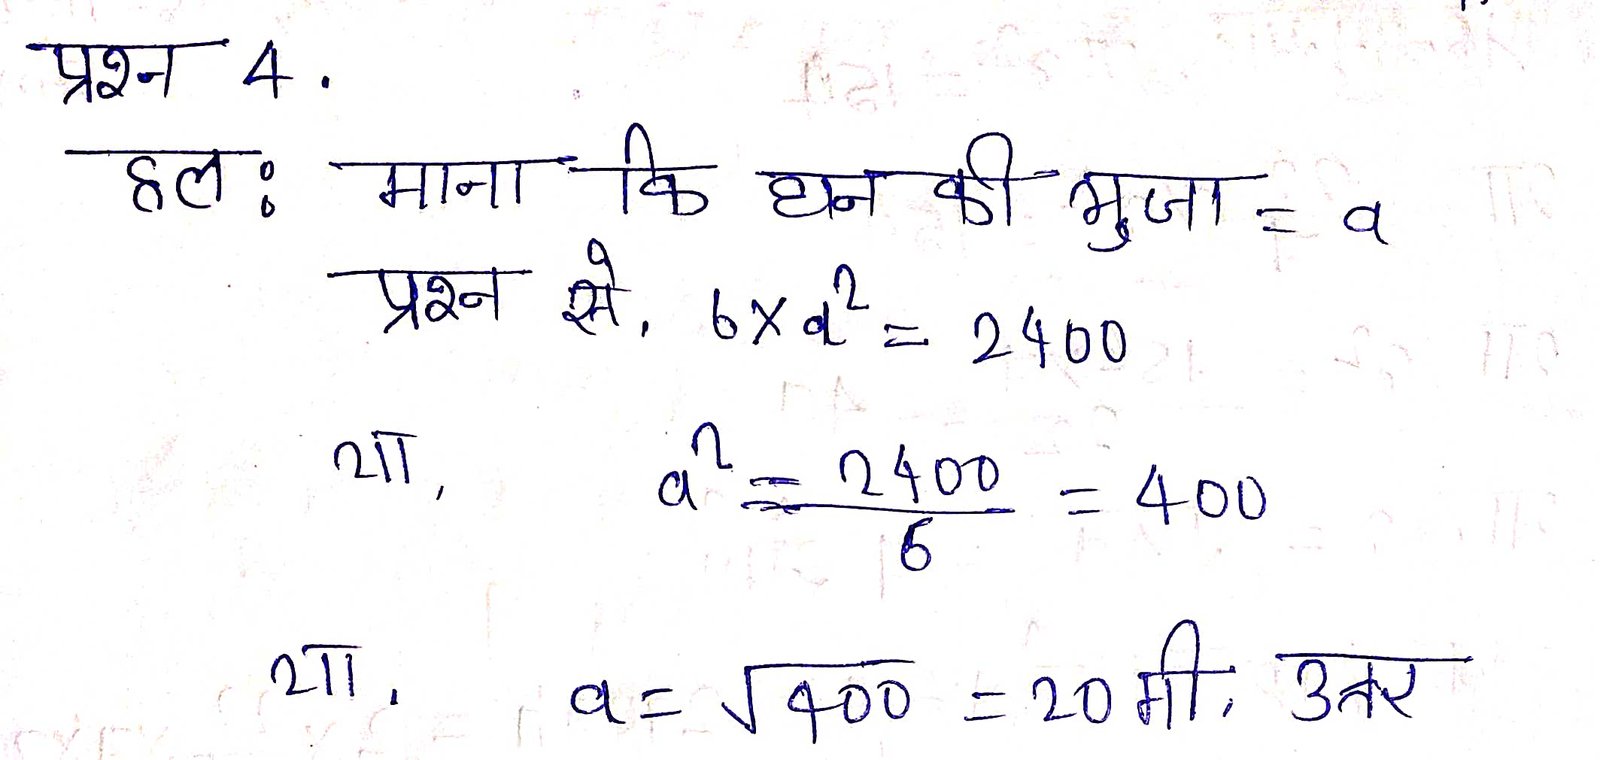 प्रश्न 4.
हल: माना कि घन की भुजा = a
प्रश्न से, 6×a² = 2400
या, a² = 2400/6 = 400
या, a = √400 = 20 मी. उत्तर